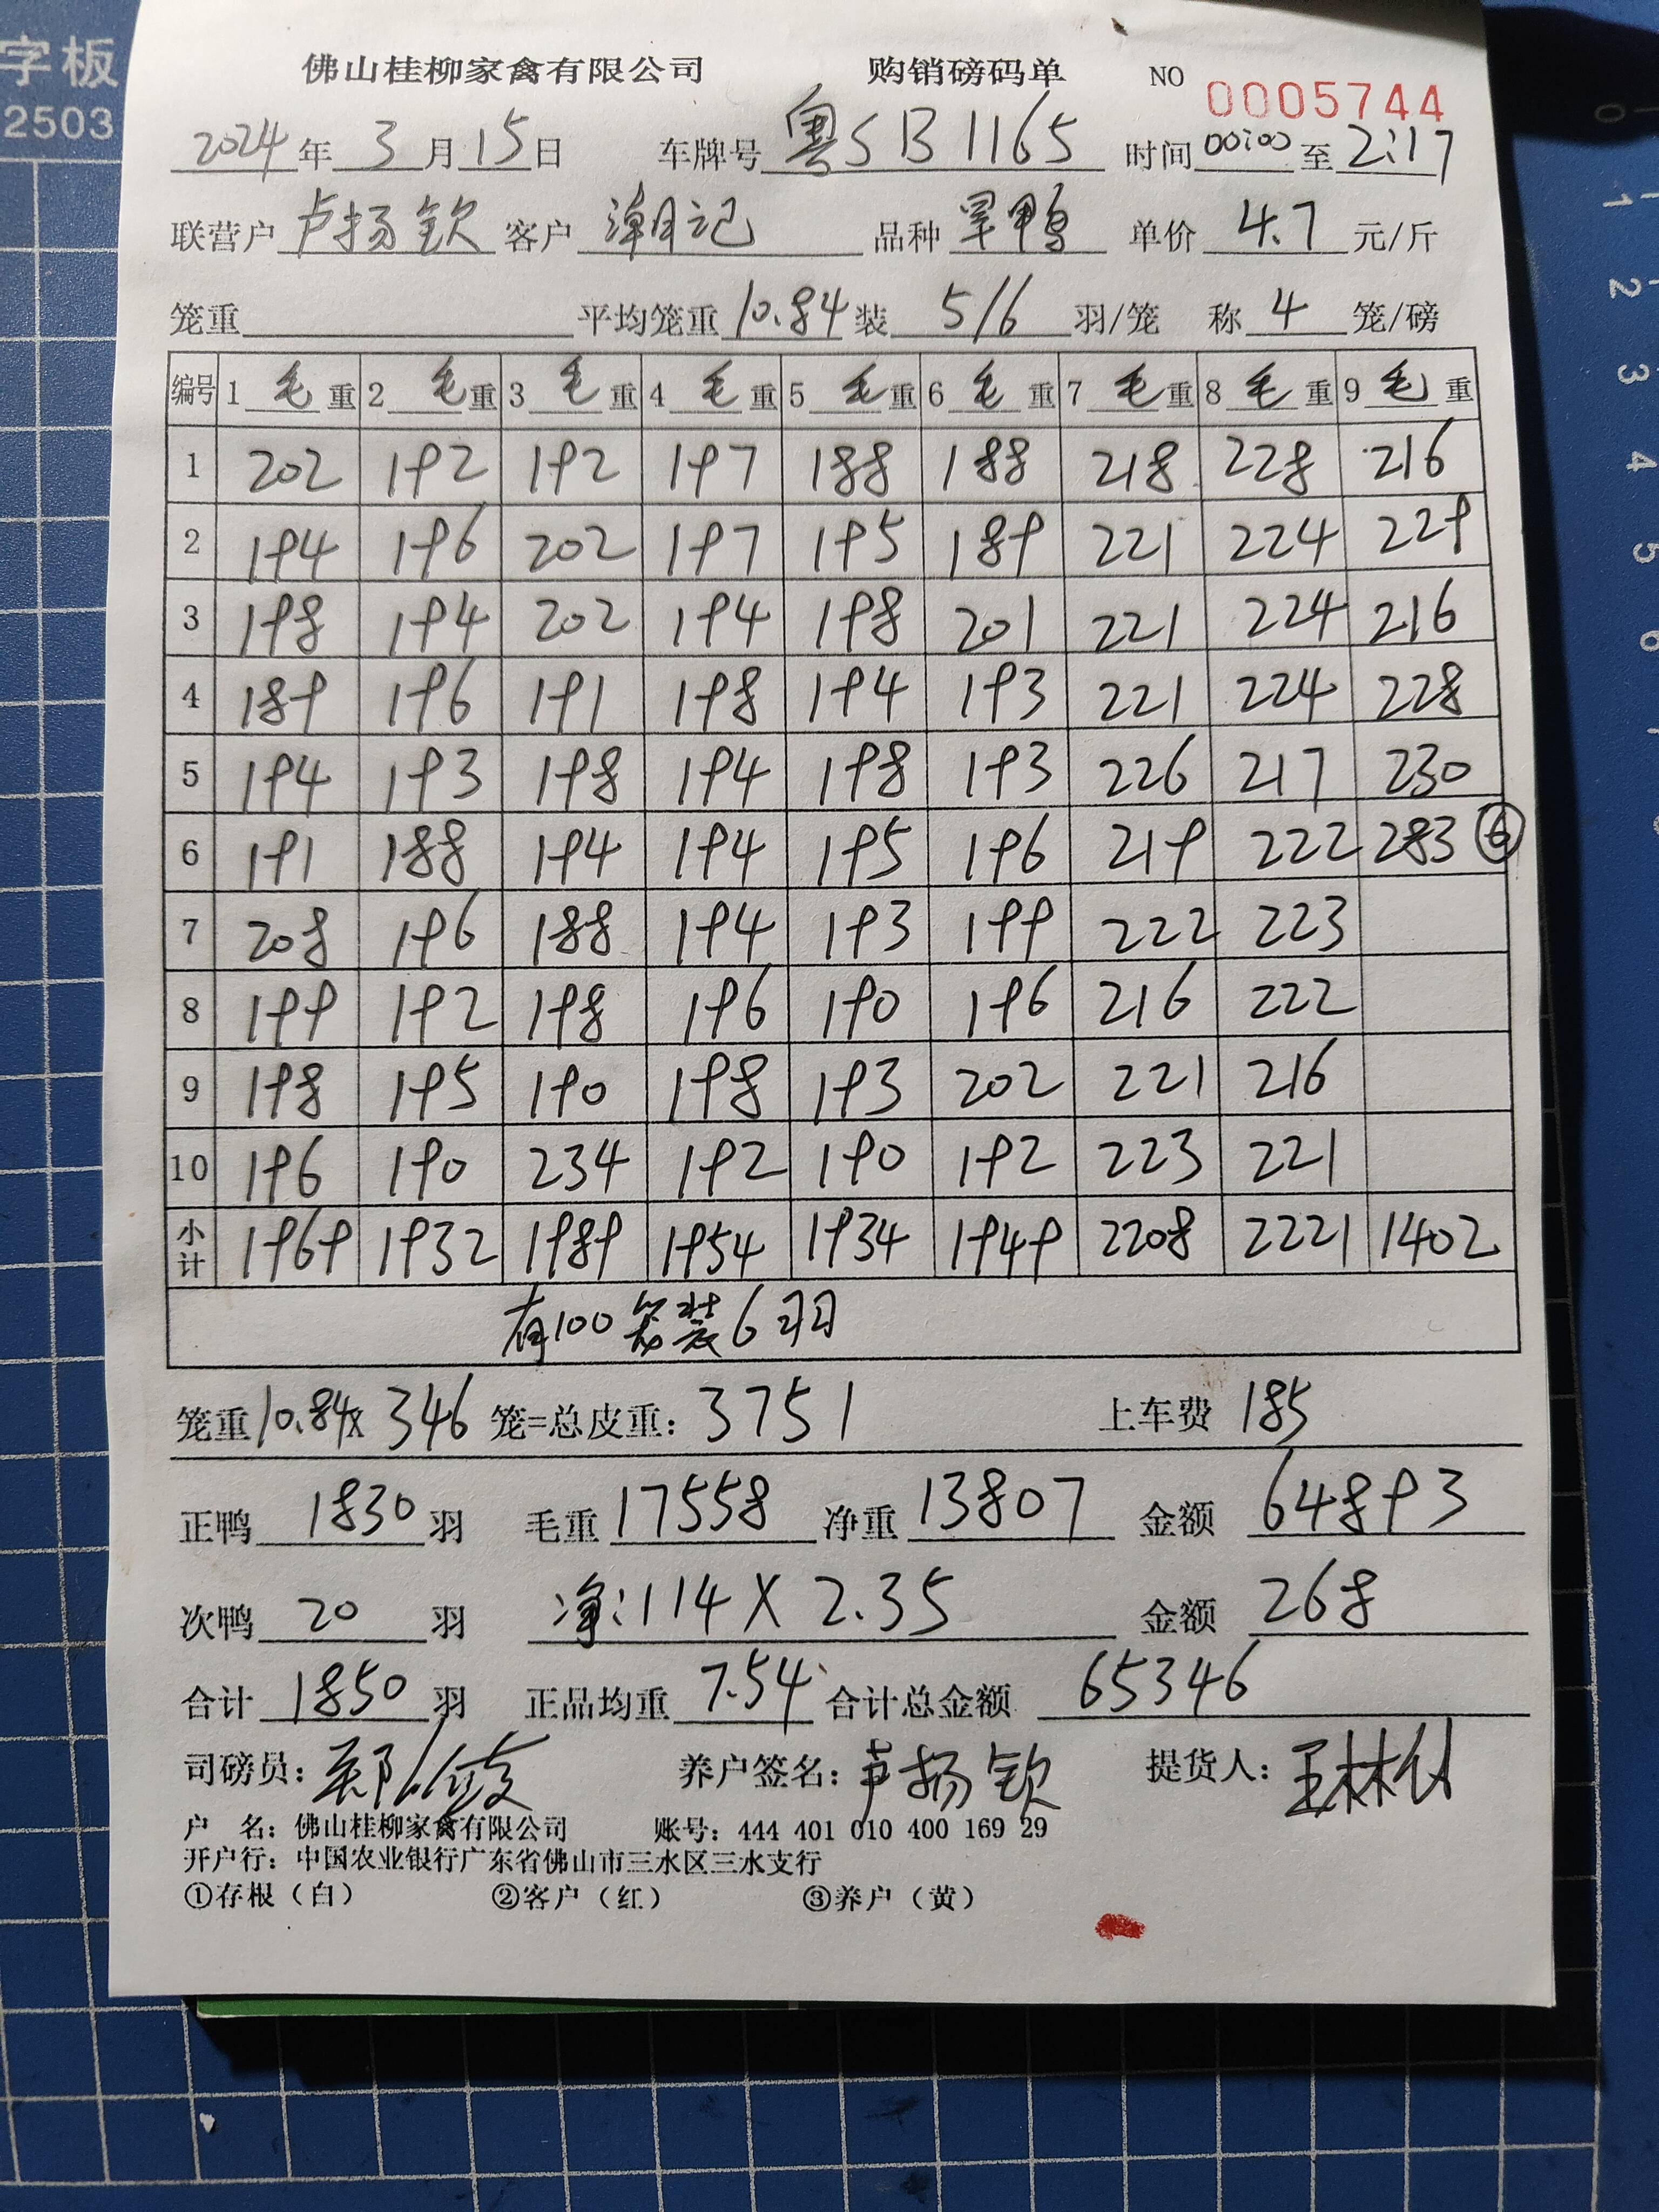 字板
2503
佛山桂柳家禽有限公司 购销磅码单 NO 0005744
2024年3月15日 车牌号 粤SB1165 时间 00:00 至 2:17
联营户 卢扬钦 客户 潮记 品种 旱鸭 单价 4.7 元/斤
笼重 平均笼重 10.84 装 5/6 羽/笼 称 4 笼/磅
编号 1 毛重 2 毛重 3 毛重 4 毛重 5 毛重 6 毛重 7 毛重 8 毛重 9 毛重
1 202 192 192 197 188 188 218 228 216
2 194 196 202 197 195 189 221 224 229
3 198 194 202 194 198 201 221 224 216
4 189 196 191 198 194 193 221 224 228
5 194 193 198 194 198 193 226 217 230
6 191 188 194 194 195 196 219 222 283 ⑥
7 208 196 188 194 193 199 222 223
8 199 192 198 196 190 196 216 222
9 198 195 190 198 193 202 221 216
10 196 190 234 192 190 192 223 221
小计 1969 1932 1989 1954 1934 1949 2208 2221 1402
有100笼装6羽
笼重 10.84 x 346 笼=总皮重: 3751 上车费 185
正鸭 1830 羽 毛重 17558 净重 13807 金额 64893
次鸭 20 羽 净:114 X 2.35 金额 268
合计 1850 羽 正品均重 7.54 合计总金额 65346
司磅员: 养户签名: 卢扬钦 提货人:
户 名: 佛山桂柳家禽有限公司 账号: 444 401 010 400 169 29
开户行: 中国农业银行广东省佛山市三水区三水支行
①存根（白） ②客户（红） ③养户（黄）
0
1
2
3
4
5
6
7